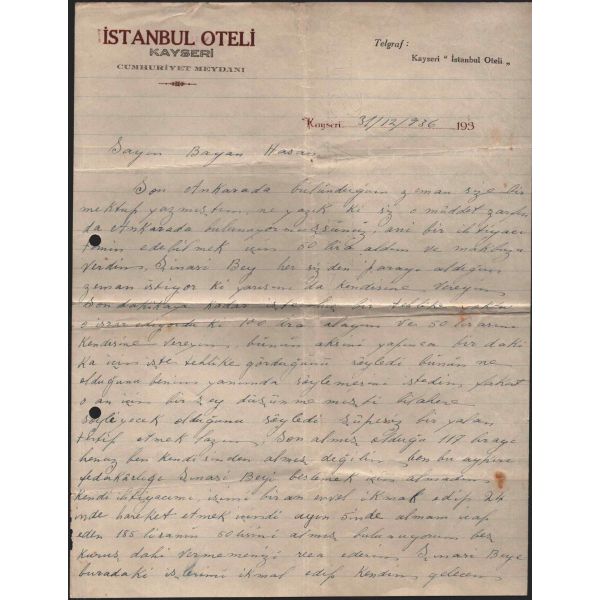 İSTANBUL OTELİ
KAYSERİ
CUMHURİYET MEYDANI
Telgraf :
Kayseri " İstanbul Oteli "
Kayseri 31/12/936 193
Sayın Bayan Hasan
Son Ankarada bulunduğum zeman size bir
mektup yazmıştım, ne yazık ki siz o müddet zarfın
da Ankarada bulunmuyormuşsunuz, ani bir ihtiyacı
temin edebilmek için 50 lira aldım ve makbuz
verdim. Bey her sizden parayı aldığım
zeman istiyor ki yarısını da kendisine vereyim
Son dakikaya kadar işte hiç bir tehlike yoktu
o ısrar ediyordu ki 100 lira alayım ve 50 lirasını
kendisine vereyim, bunun aksini yapınca bir daki
ka için işte tehlike gördüğünü söyledi bunun ne
olduğunu benim yanımda söylemesini istedim, fakat
o an için bir şey düşünmemişti bilahere
söyleyecek olduğunu söyledi şüpesiz bir yalan
tertif etmek lazım. Son almış olduğu 117 lirayı
henuz ben kendisinden almış değilim, ben bu
fedakârlığı Beyi beslemek için almadım
kendi ihtiyacımı, işimi bir an evvel ikmal edip 24
inde hareket etmek içindi ayın 5inde almam icap
eden 185 liranın 50 lirasını almış bulunuyorum beş
kuruş dahi vermemenizi reca ederim. Beye
buradaki işlerimi ikmal edip kendim gelecem